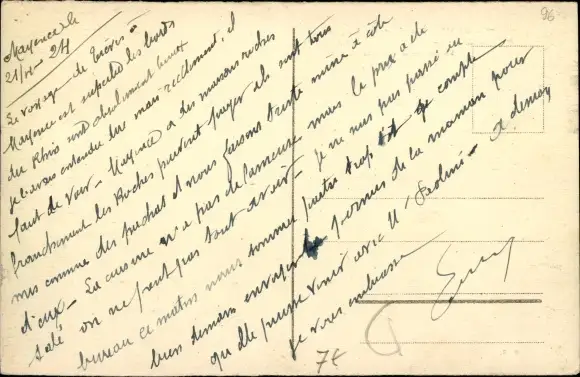 Mayence le
21/ - 24
Le voyage de Trèves -
Mayence est superbe les bords
du Rhin sont absolument beaux
je l'avais entendu dire mais réellement, il
faut le voir - Mayence a des maisons riches
franchement les Boches peuvent payer ils sont tous
mis comme des et nous faisons triste mine à côté
d'eux - La cuisine n'a pas de mais le prix a de
salé on ne peut pas tout avoir - je ne suis pas passé au
bureau ce matin nous sommes trop je compte
bien demain envoyer la de la maman pour
qu'elle puisse venir avec M - A demain
je vous embrasse
74
96